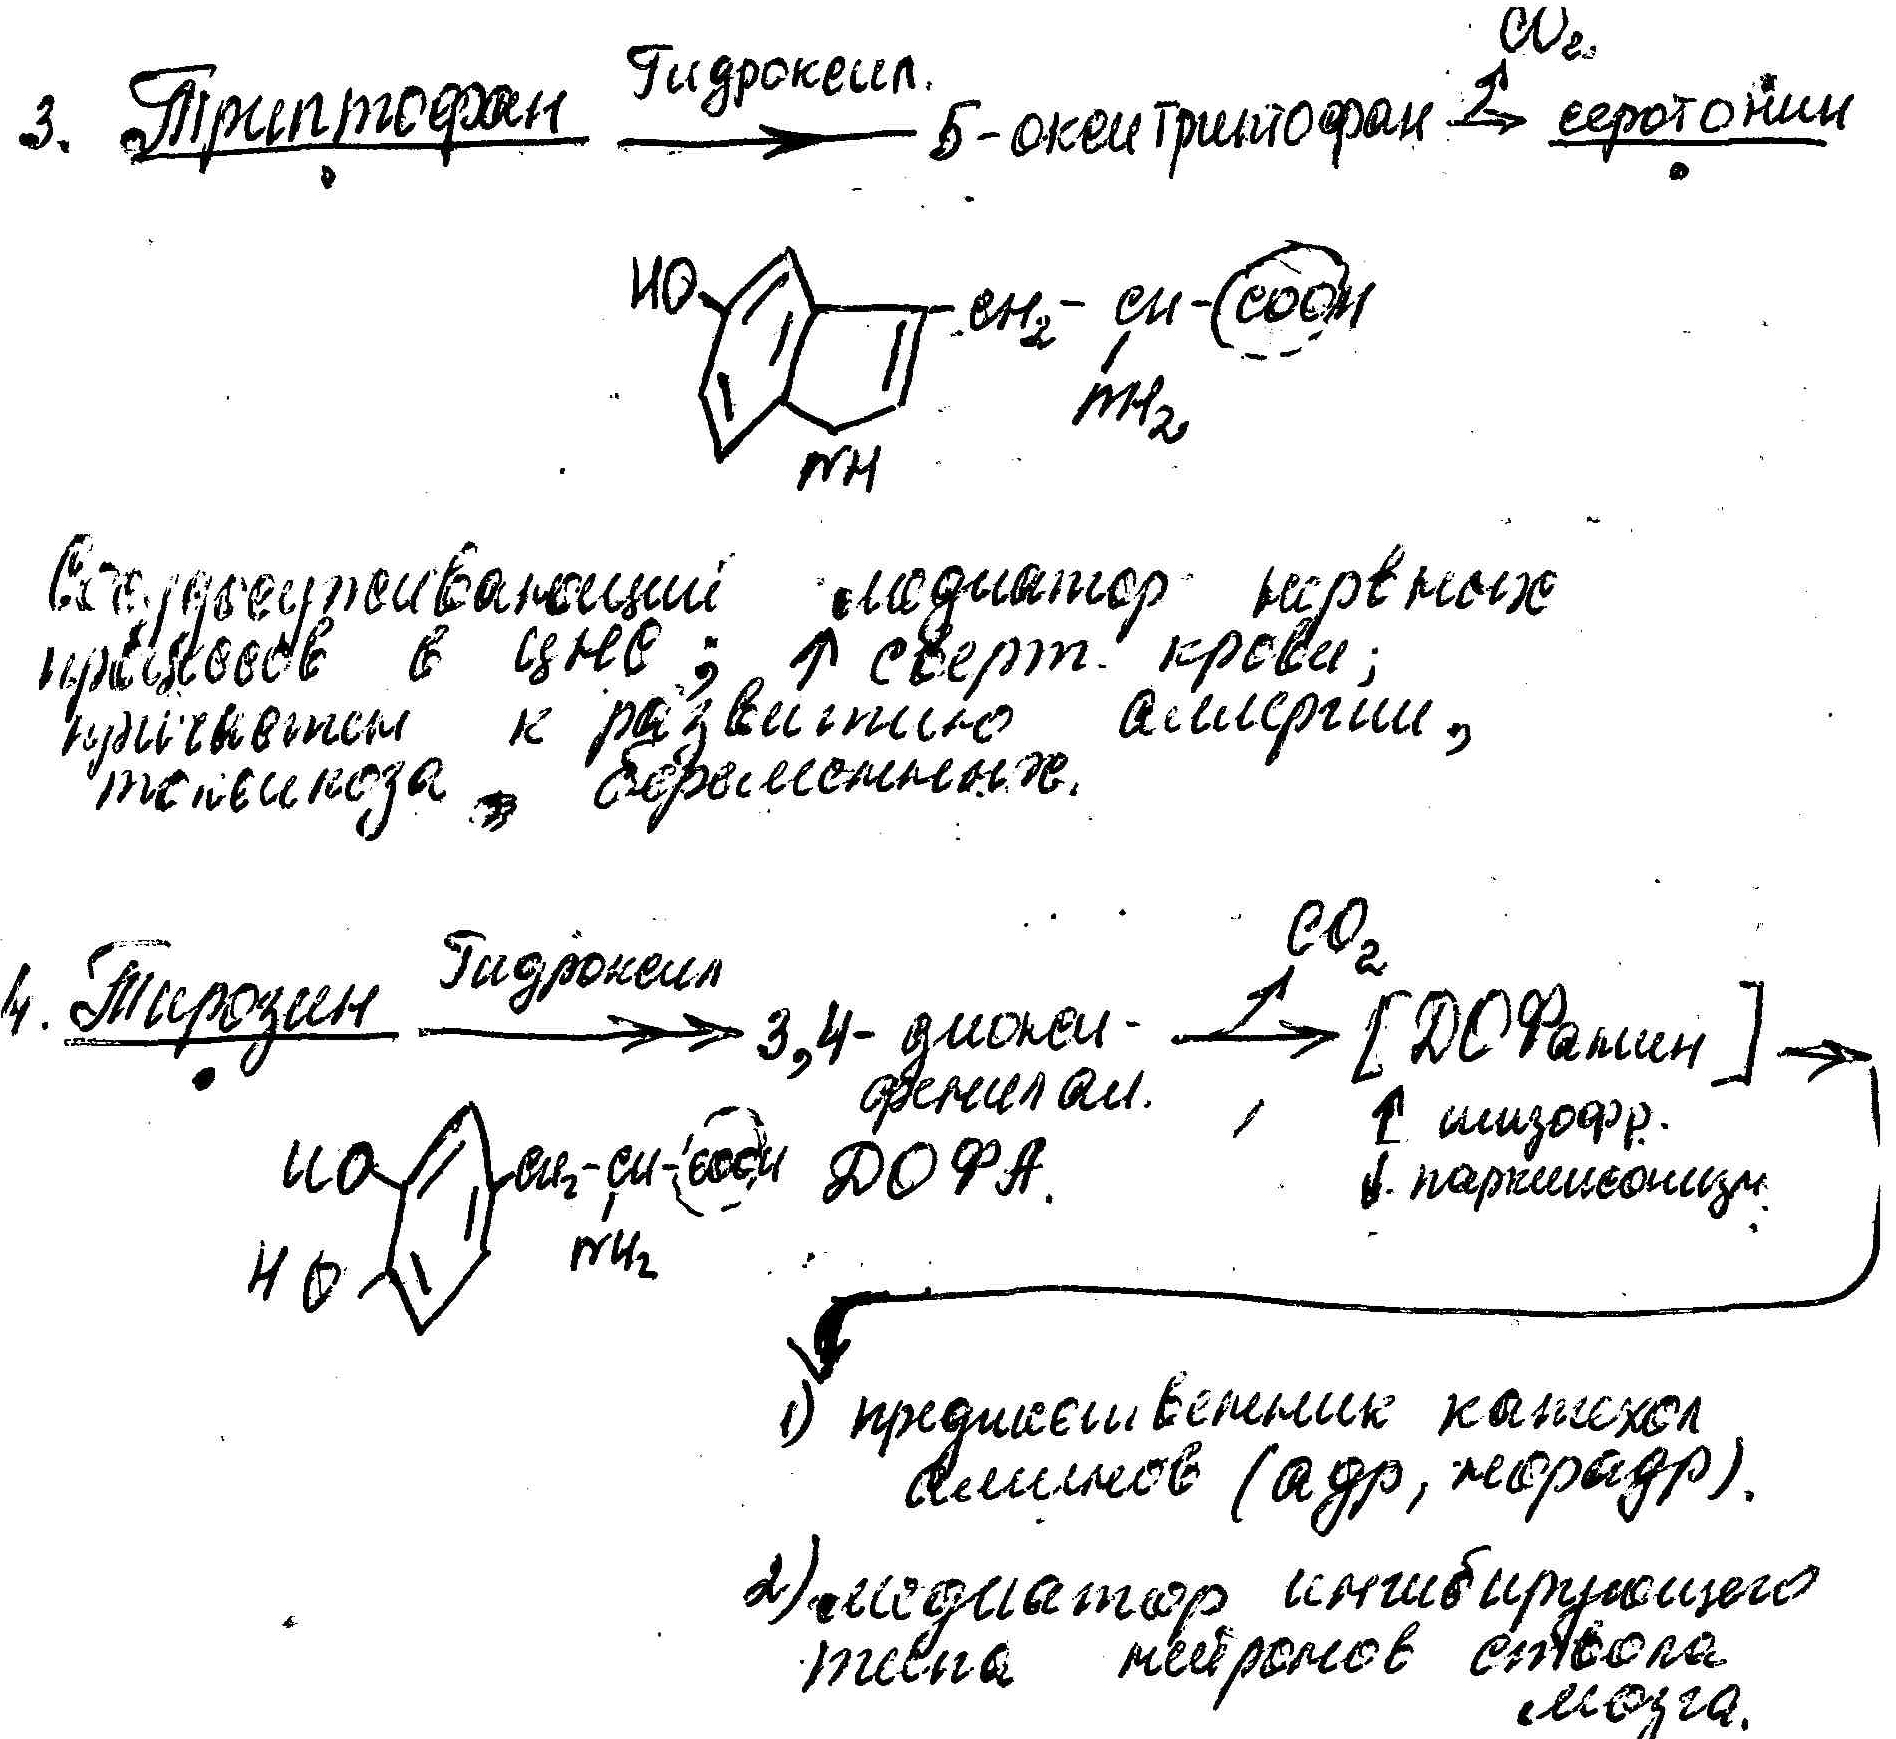 CO2
3. Триптофан Гидроксил. 5-окситриптофан серотонин
HO CH2 - CH - COOH
NH2
NH
Сосудосуживающий медиатор нервных
процессов в ЦНС; ↑ сверт. крови;
причастен к развитию аллергии,
токсикоза беременных.
CO2
4. Тирозин Гидроксил 3,4- диокси- [ДОФамин]
фенилал. ↑ шизофр.
HO CH2-CH-COOH ДОФА. ↓ паркинсонизм.
HO NH2
1) предшественник катехол
аминов (адр, норадр).
2) медиатор ингибирующего
типа нейронов ствола
мозга.